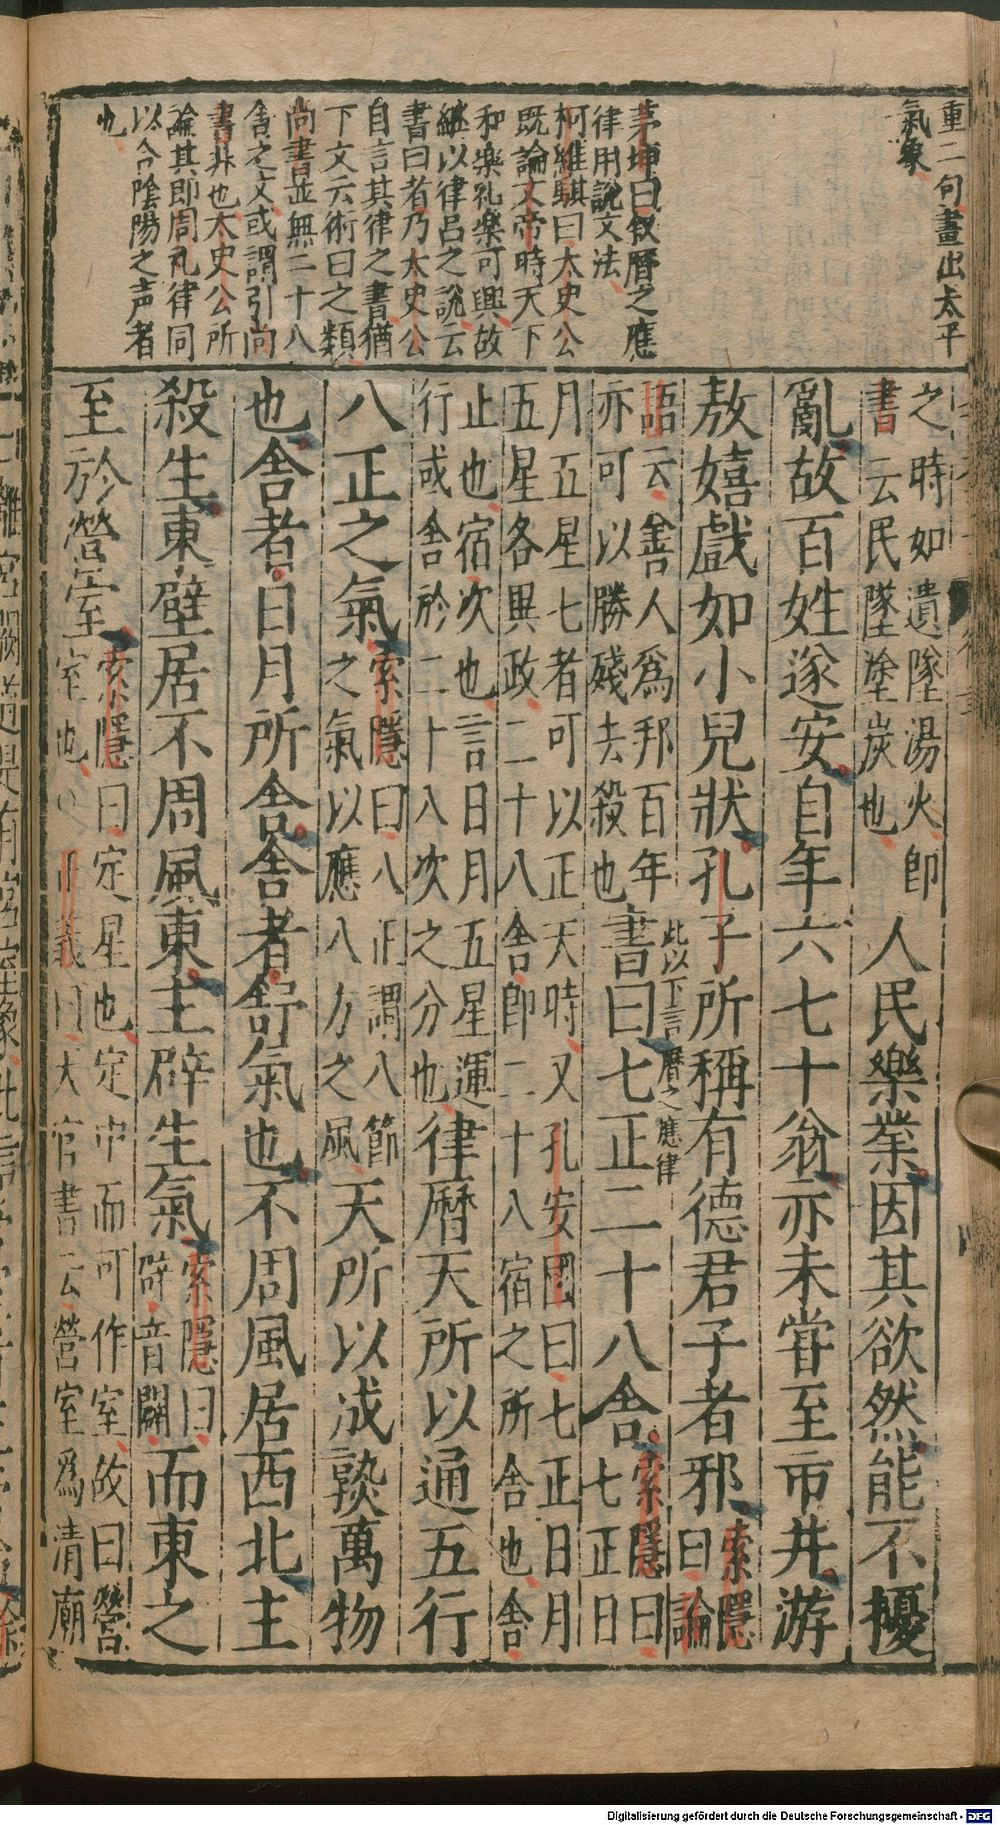 重二句畫出太平
氣象
茅坤曰叙曆之應
律用說文法
柯維騏曰太史公
既論文帝時天下
和樂礼樂可興故
継以律呂之說云
書曰者乃太史公
自言其律之書猶
下文云術曰之類
尚書並無二十八
舍之文或謂引尚
書非也太史公所
論其即周礼律同
以合陰陽之声者
也
之時如遺墜湯火即
書云民墜塗炭也
人民樂業因其欲然能不擾
亂故百姓遂安自年六七十翁亦未甞至市井游
敖嬉戲如小兒狀孔子所稱有德君子者邪
索隱
曰論
語云善人爲邦百年
亦可以勝殘去殺也
此以下言曆之應律
書曰七正二十八舍
索隱曰
七正日
月五星七者可以正天時又孔安國曰七正日月
五星各異政二十八舍即二十八宿之所舍也舍
止也宿次也言日月五星運
行或舍於二十八次之分也
律曆天所以通五行
八正之氣
索隱曰八正謂八節
之氣以應八方之風
天所以成熟萬物
也舍者日月所舍舍者舒氣也不周風居西北主
殺生東壁居不周風東主辟生氣
索隱曰
辟音闢
而東之
至於營室
索隱曰定星也定中而可作室故曰營
室也○正義曰天官書云營室爲清廟
Digitalisierung gefördert durch die Deutsche Forschungsgemeinschaft - DFG